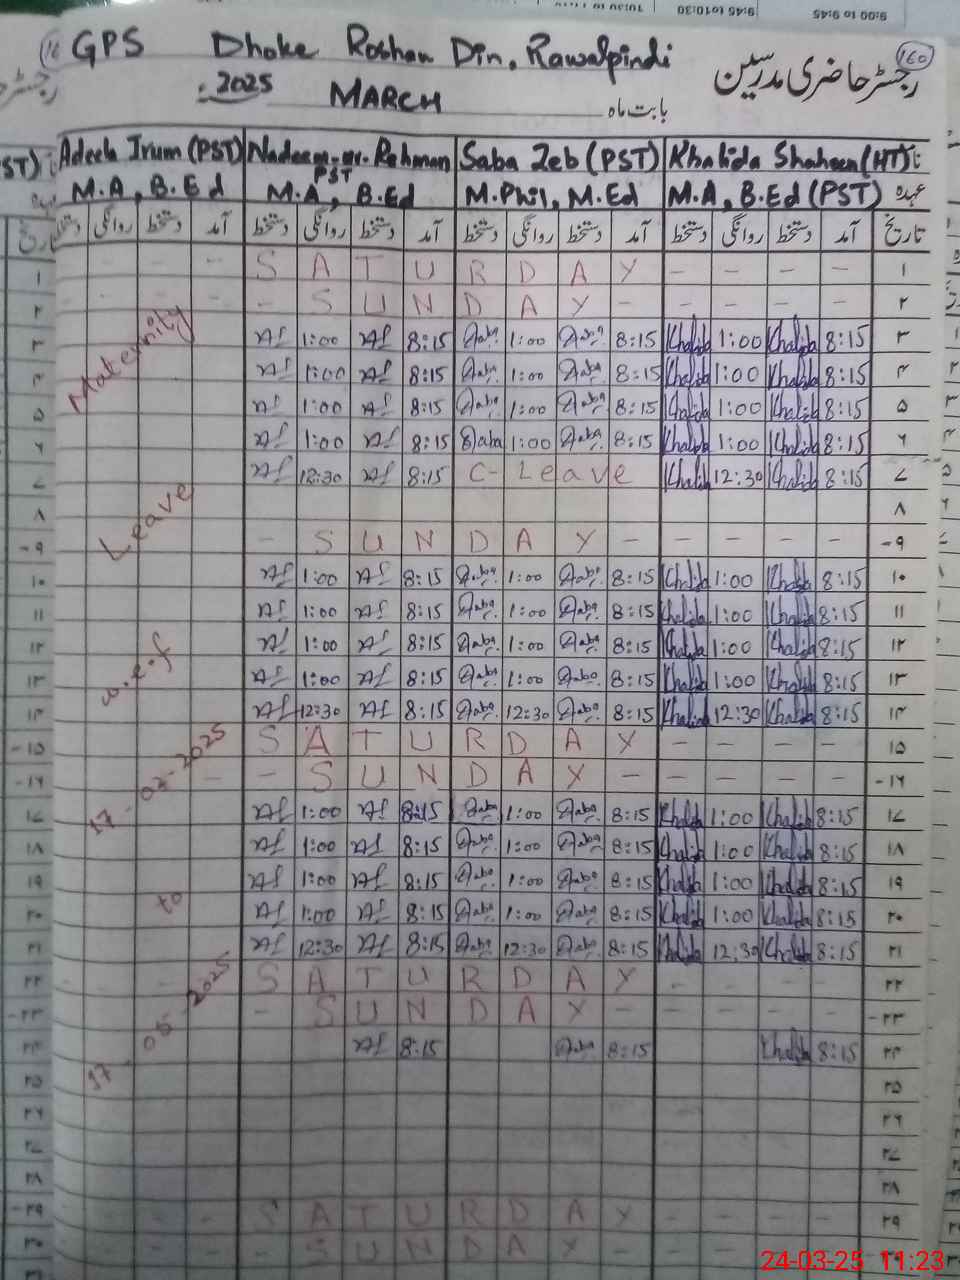 9:00 to 9:45 9:45 to 10:30
GPS Dhoke Roshan Din, Rawalpindi
160 رجسٹر حاضری مدرسین
2025 MARCH بابت ماہ
Adeela Irum (PST) Nadeem-ur-Rehman Saba Zeb (PST) Khalida Shaheen (HT)
M.A, B.Ed PST M.A, B.Ed M.Phil, M.Ed M.A, B.Ed (PST) عہدہ
دستخط روانگی دستخط آمد دستخط روانگی دستخط آمد دستخط روانگی دستخط آمد دستخط روانگی دستخط آمد تاریخ
Maternity Leave w.e.f 17-02-2025 to 17-05-2025
- S A T U R D A Y - - - - ۱
- - S U N D A Y - - - - - ۲
1:00 8:15 Saba 1:00 Saba 8:15 Khalida 1:00 Khalida 8:15 ۳
1:00 8:15 Saba 1:00 Saba 8:15 Khalida 1:00 Khalida 8:15 ۴
1:00 8:15 Saba 1:00 Saba 8:15 Khalida 1:00 Khalida 8:15 ۵
1:00 8:15 Saba 1:00 Saba 8:15 Khalida 1:00 Khalida 8:15 ۶
12:30 8:15 C-Leave Khalida 12:30 Khalida 8:15 ۷
۸
- S U N D A Y - - - - - ۹
1:00 8:15 Saba 1:00 Saba 8:15 Khalida 1:00 Khalida 8:15 ۱۰
1:00 8:15 Saba 1:00 Saba 8:15 Khalida 1:00 Khalida 8:15 ۱۱
1:00 8:15 Saba 1:00 Saba 8:15 Khalida 1:00 Khalida 8:15 ۱۲
1:00 8:15 Saba 1:00 Saba 8:15 Khalida 1:00 Khalida 8:15 ۱۳
12:30 8:15 Saba 12:30 Saba 8:15 Khalida 12:30 Khalida 8:15 ۱۴
S A T U R D A Y - - - - ۱۵
- S U N D A Y - - - - - ۱۶
1:00 8:15 Saba 1:00 Saba 8:15 Khalida 1:00 Khalida 8:15 ۱۷
1:00 8:15 Saba 1:00 Saba 8:15 Khalida 1:00 Khalida 8:15 ۱۸
1:00 8:15 Saba 1:00 Saba 8:15 Khalida 1:00 Khalida 8:15 ۱۹
1:00 8:15 Saba 1:00 Saba 8:15 Khalida 1:00 Khalida 8:15 ۲۰
12:30 8:15 Saba 12:30 Saba 8:15 Khalida 12:30 Khalida 8:15 ۲۱
S A T U R D A Y - - - - ۲۲
S U N D A Y - - - - - ۲۳
8:15 Saba 8:15 Khalida 8:15 ۲۴
۲۵
۲۶
۲۷
۲۸
- - - S A T U R D A Y - - - - ۲۹
- - - - S U N D A Y - - - - - ۳۰
24-03-25 11:23